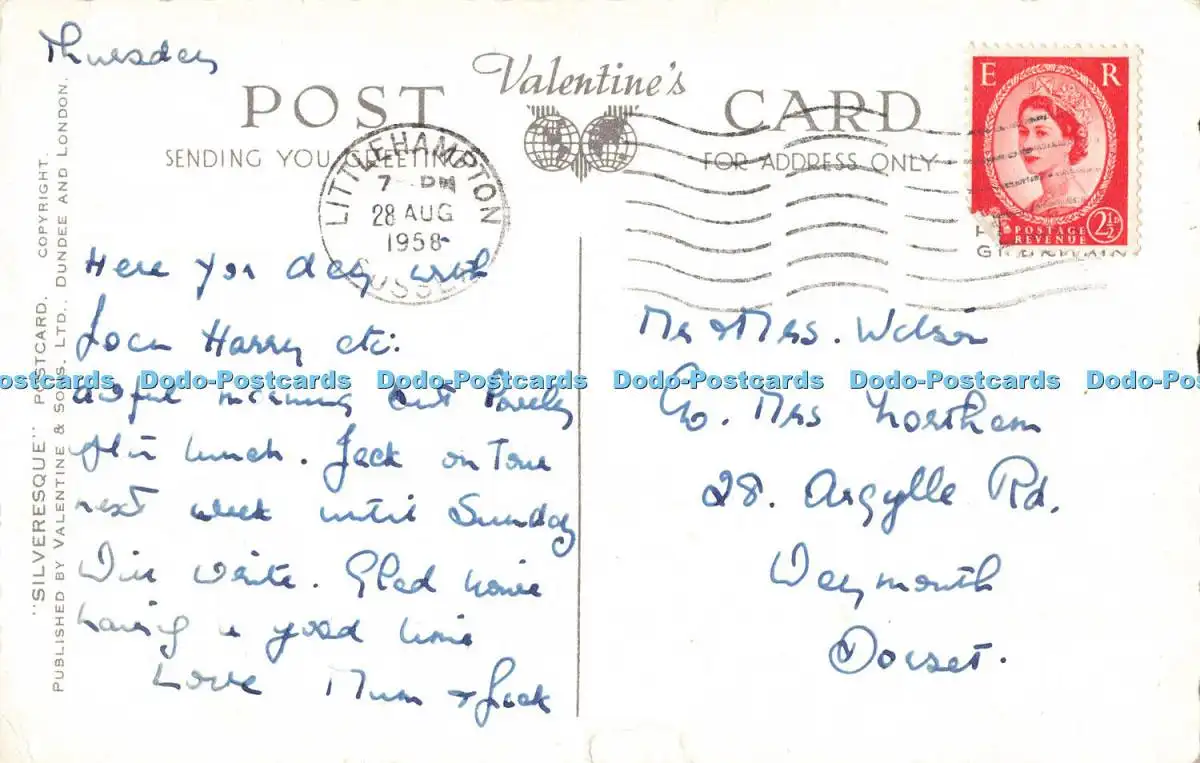 Thursday
POST
Valentine's
CARD
SENDING YOU GREETING
FOR ADDRESS ONLY
E R
2½D
POSTAGE
REVENUE
LITTLEHAMPTON
7 - PM
28 AUG
1958
SUSSEX
"SILVERESQUE" POSTCARD. COPYRIGHT.
PUBLISHED BY VALENTINE & SONS. LTD., DUNDEE AND LONDON.
Here for day with
Harry etc:
awful morning but lovely
after lunch. Jack on
next week until Sunday
Will write. Glad
having a good time
Love Mum & Jack
Mr & Mrs. Wilson
C/o. Mrs Northam
28. Argylle Rd.
Weymouth
Dorset.
Dodo-Postcards Dodo-Postcards Dodo-Postcards Dodo-Postcards Dodo-Postcards